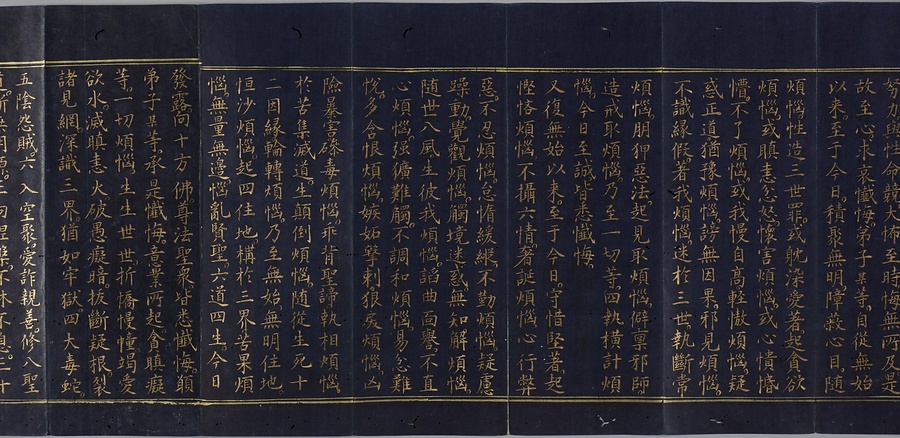 努力與性命競大怖至時悔無所及是
故至心求哀懺悔弟子某等自從無始
以來至于今日積聚無明障蔽心目隨
煩惱性造三世罪或耽染愛著起貪欲
煩惱或瞋恚忿怒懷害煩惱或心憒惛
懵不了煩惱或我慢自高輕慠煩惱疑
惑正道猶豫煩惱謗無因果邪見煩惱
不識緣假著我煩惱迷於三世執斷常
煩惱朋狎惡法起見取煩惱僻稟邪師
造戒取煩惱乃至一切等四執橫計煩
惱今日至誠皆悉懺悔
又復無始以來至于今日守惜堅著起
慳悋煩惱不攝六情奢誕煩惱心行弊
惡不忍煩惱怠惰緩縱不勤煩惱疑慮
躁動覺觀煩惱觸境迷惑無知解煩惱
隨世八風生彼我煩惱諂曲面譽不直
心煩惱强獷難觸不調和煩惱易忿難
悅多含恨煩惱嫉妬擊刺狠戾煩惱凶
險暴害磣毒煩惱乖背聖諦執相煩惱
於苦集滅道生顛倒煩惱隨從生死十
二因緣輪轉煩惱乃至無始無明住地
恒沙煩惱起四住地構於三界苦果煩
惱無量無邊惱亂賢聖六道四生今日
發露向十方佛尊法聖衆皆悉懺悔願
弟子某等承是懺悔意業所起貪瞋癡
等一切煩惱生生世世折憍慢幢竭愛
欲水滅瞋恚火破愚癡暗拔斷疑根裂
諸見網深識三界猶如牢獄四大毒蛇
五陰怨賊六入空聚愛詐親善修八聖